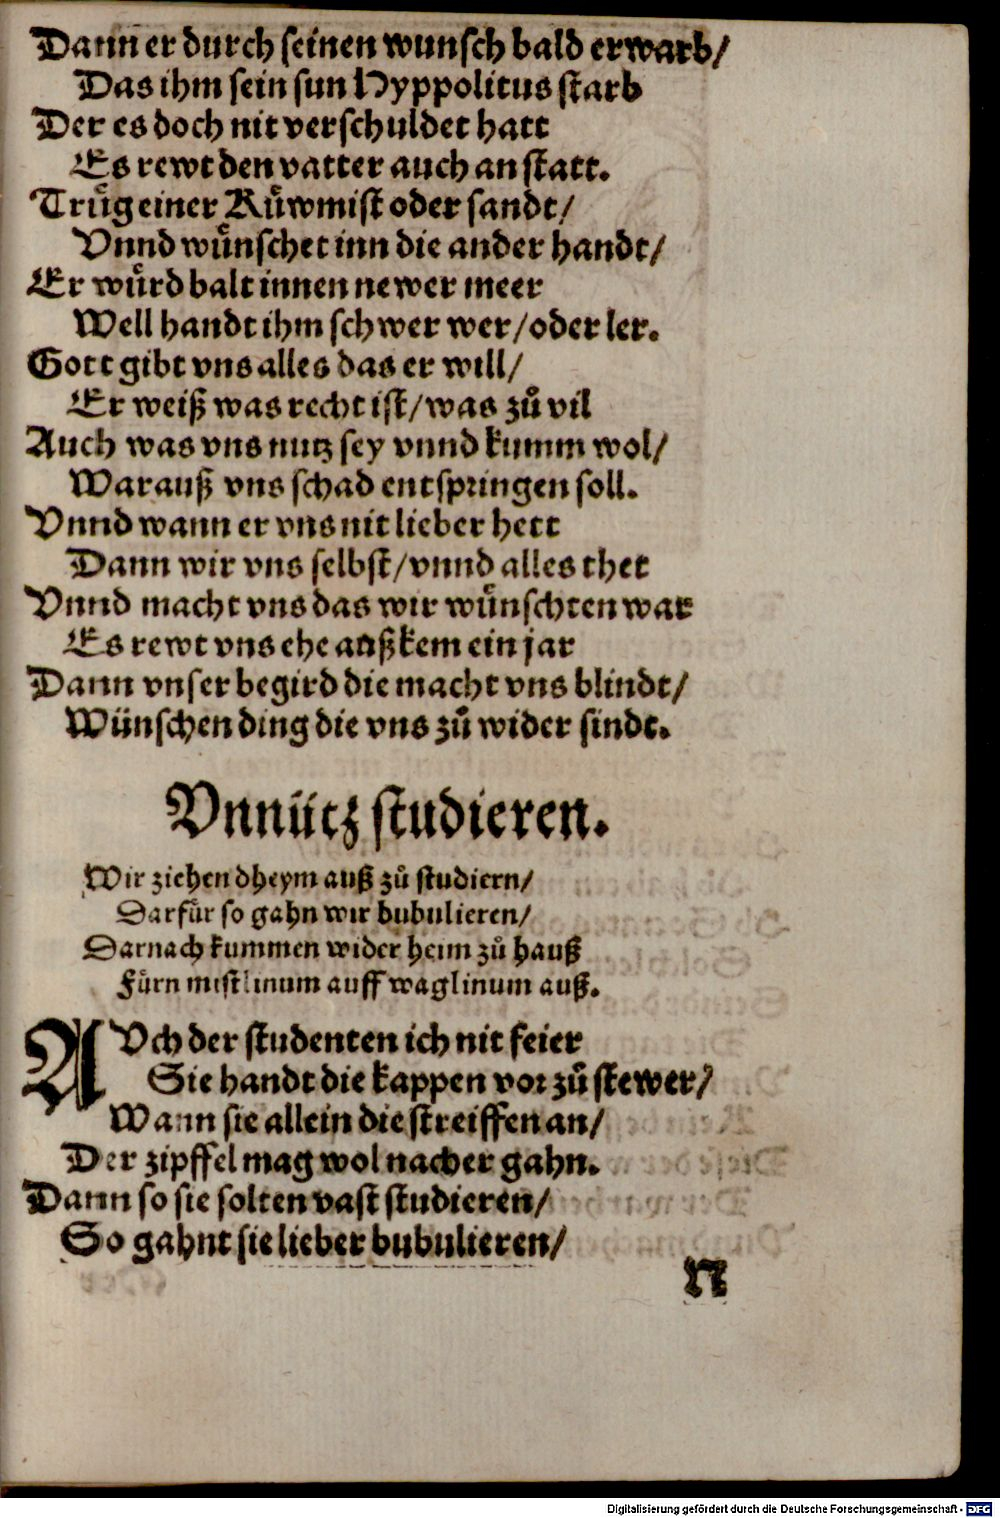 Dann er durch seinen wunsch bald erwarb/
Das ihm sein sun Hyppolitus starb
Der es doch nit verschuldet hatt
Es rewt den vatter auch an statt.
Truͤg einer Ruͤwmist oder sandt/
Vnnd wuͤnschet inn die ander handt/
Er wuͤrd balt innen newer meer
Well handt ihm schwer wer/oder ler.
Gott gibt vns alles das er will/
Er weiß was recht ist/was zuͦ vil
Auch was vns nutz sey vnnd kumm wol/
Warauß vns schad entspringen soll.
Vnnd wann er vns nit lieber hett
Dann wir vns selbst/vnnd alles thet
Vnnd macht vns das wir wuͤnschten war
Es rewt vns ehe außkem ein jar
Dann vnser begird die macht vns blindt/
Wünschen ding die vns zuͦ wider sindt.
Vnnütz studieren.
Wir ziehen dheym auß zuͦ studiern/
Darfuͤr so gahn wir bubulieren/
Darnach kummen wider heim zuͦ hauß
Fürn mistlinum auff waglinum auß.
AVch der studenten ich nit feier
Sie handt die kappen vor zuͦ stewer/
Wann sie allein die streiffen an/
Der zipffel mag wol nacher gahn.
Dann so sie solten vast studieren/
So gahnt sie lieber bubulieren/
N
Digitalisierung gefördert durch die Deutsche Forschungsgemeinschaft - DFG